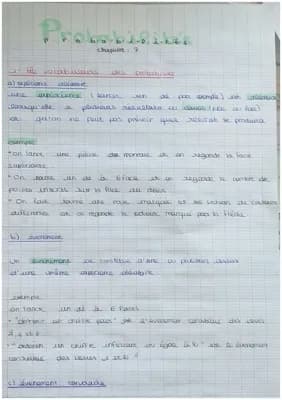 Probabilités
Chapitre : 7
1- le vocabulaire des probabilités
a) expérience aléatoire
une expérience (lancer un dé par exemple) est aléatoire
lorsqu'elle a plusieurs résultats ou issues (pile ou face)
et qu'on ne peut pas prévoir quel résultat se produira
exemple
• on lance une pièce de monnaie et on regarde la face
supérieure
• On lance un dé à 6 faces et on regarde le nombre de
points inscrits sur la face du dessus
• On fait tourner une roue marquée sur les secteurs de couleurs
différentes et on regarde le secteur marqué par la flèche
b) événement
un événement est constitué d'une ou plusieurs issues
d'une même expérience aléatoire
exemple
on lance un dé à 6 faces
• "obtenir un chiffre pair" est l'événement constitué des issues
2, 4 et 6
• "obtenir un chiffre inférieur ou égale à" est l'événement
constitué des issues
c) événement contraire